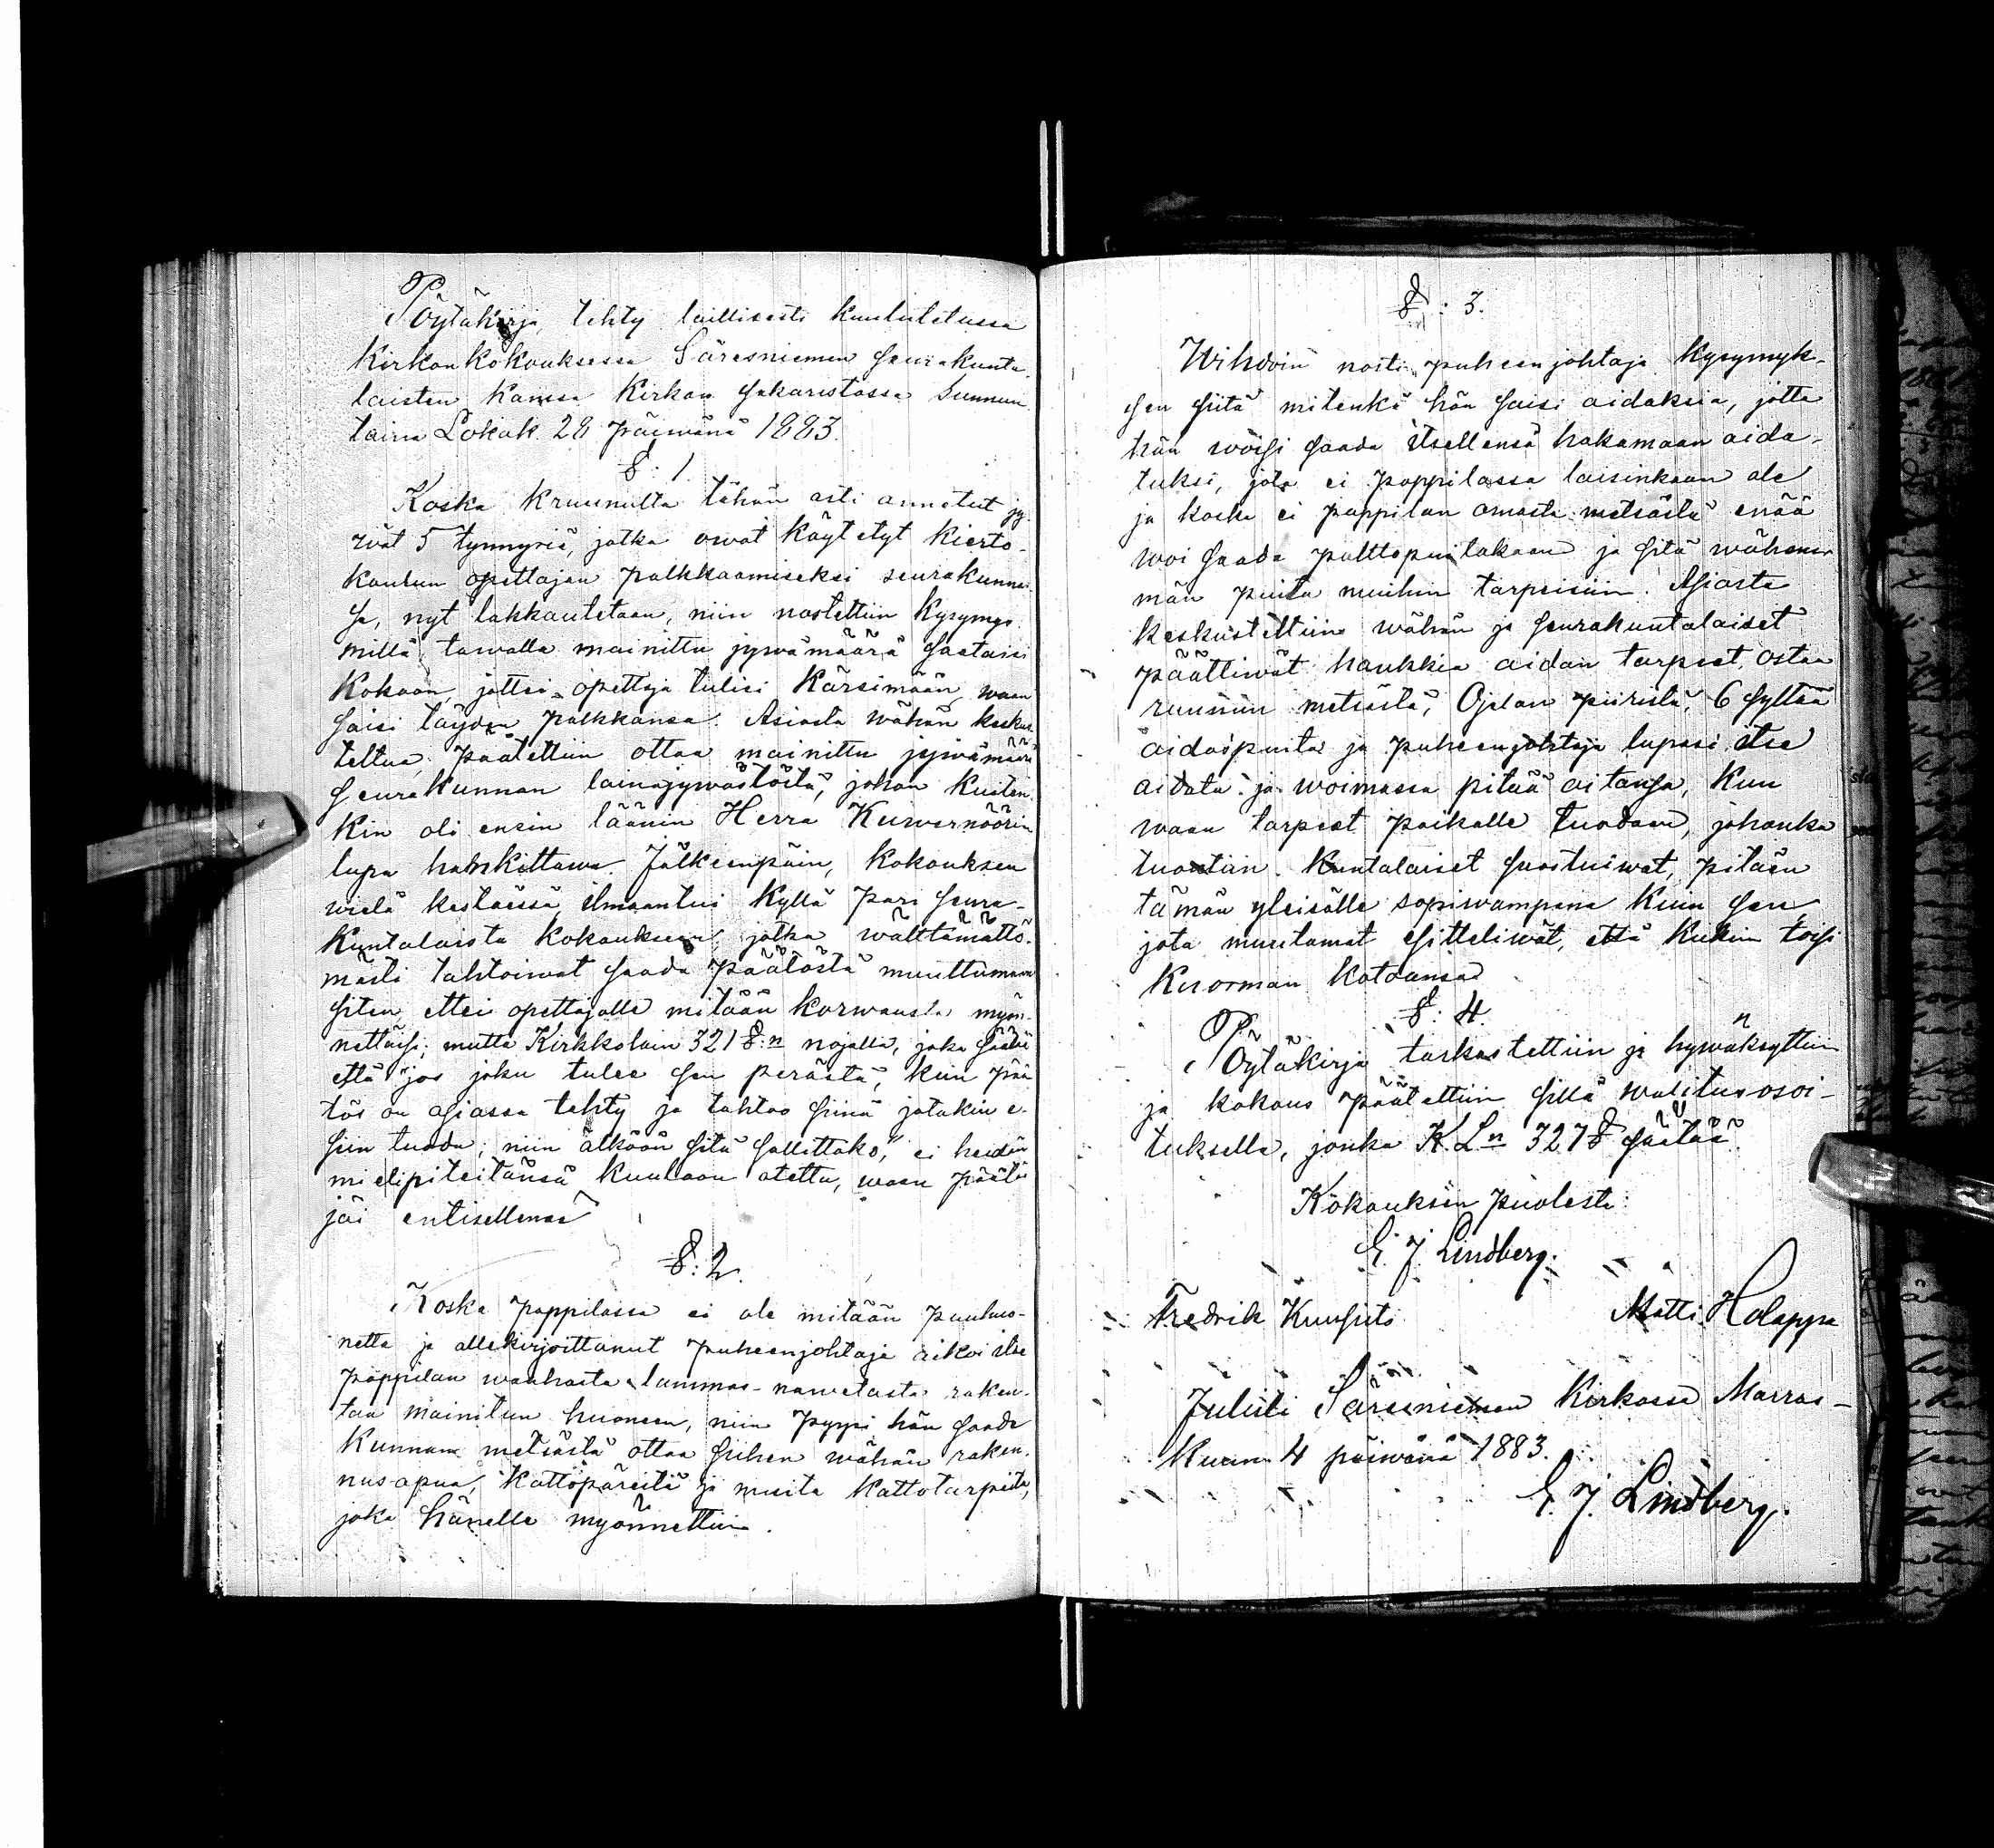 Pöytäkirja, tehty laillisesti kuulutetussa
kirkonkokouksessa Säresniemen seurakunta-
laisten kanssa kirkon sakaristossa Sunnun
taina Lokak. 28 päiwänä 1883.
§: 1
Koska kruunulta tähän asti annetut jy-
wät 5 tynnyriä, jotka owat käytetyt kierto-
koulun opettajan palkkaamiseksi seurakunnas-
sa, nyt lakkautetaan, niin nostettiin kysymys
millä tawalla mainittu jywämäärä saataisi
kokoon, jottei opettaja tulisi kärsimään, waan
saisi täyden palkkansa. Asiasta wähän keskus
teltua, päätettiin ottaa mainittu jywämäärä
seurakunnan lainajywästöstä, johon kuiten-
kin oli ensin läänin Herra Kuwernöörin
lupa hankittawa. Jälkeenpäin, kokouksen
wielä kestäessä ilmaantui kyllä pari seura-
kuntalaista kokoukseen, jotka wälttämättö-
mästi tahtoiwat saada päätöstä muuttumaan
siten, ettei opettajalle mitään korwausta myön-
nettäisi; mutta Kirkkolain 321 §:n nojalla, joka säätää
että "jos joku tulee sen perästä, kuin pää
tös on asiassa tehty ja tahtoo siinä jotakin e-
siin tuoda, niin älköön sitä sallittako," ei heidän
mielipiteitänsä kuuloon otettu, waan päätös
jäi entisellensä
§: 2.
Koska pappilassa ei ole mitään puuhuo-
netta ja allekirjoittanut puheenjohtaja aikoi itse
pappilan wanhasta lammas-nawetasta raken-
taa mainitun huoneen, niin pyysi hän saada
kunnan metsästä ottaa siihen wähän raken-
nusapua, kattopäreitä ja muita kattotarpeita,
joka hänelle myönnettiin.
§: 3.
Wihdoin nosti puheenjohtaja kysymyk-
sen siitä mitenkä hän saisi aidaksia, jotta
hän woisi saada itsellensä hakamaan aida-
tuksi, jota ei pappilassa laisinkaan ole
ja koska ei pappilan omasta metsästä enää
woi saada polttopuitakaan ja sitä wähem-
män puita muihin tarpeisiin. Asiasta
keskusteltiin wähän ja seurakuntalaiset
päättiwät hankkia aidan tarpeet, ostaa
ruunun metsästä, Ojalan piiristä, 6 syltää
aidaspuita ja puheenjohtaja lupasi itse
aidata ja woimassa pitää aitansa, kun
waan tarpeet paikalle tuodaan, johonka
tuontiin kuntalaiset suostuiwat, pitäen
tämän yleisölle sopiwampana kuin sen
jota muutamat esitteliwät, että kukin toisi
kuorman kotoansa
§: 4.
Pöytäkirja tarkastettiin ja hywäksyttiin
ja kokous päätettiin sillä walitusosoi-
tuksella, jonka K. Ln 327 § säätää
Kokouksen puolesta:
E. J. Lindberg.
Fredrik Kuusirto Matti Holappa
Julisti Säresniemen kirkossa Marras-
kuun 4 päiwänä 1883.
E. J. Lindberg.